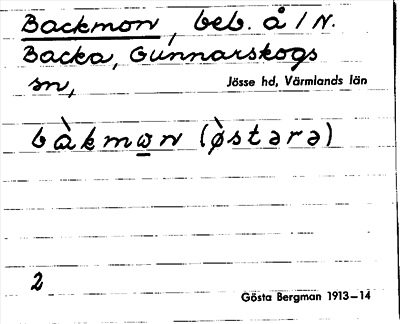 Backmon, beb. å 1 N.
Backa, Gunnarskogs
sn, Jösse hd, Värmlands län
bàkmωn (ø̀stərə)
2
Gösta Bergman 1913–14